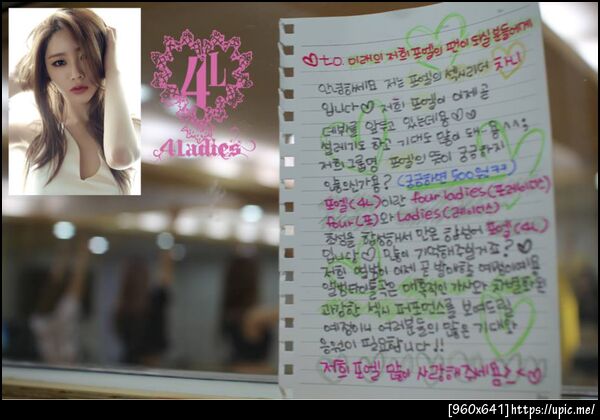 4L
4Ladies
♡to. 미래의 저희 포엘의 팬이 되실 분들에게
안녕하세요 저는 포엘의 섹시리더 차니
입니다♡ 저희 포엘이 이제 곧
데뷔를 앞두고 있는데용♡
설레기도 하고 기대도 많이 돼-용^^;
저희 그룹명 포엘의 뜻이 궁금하지
않으신가용? (궁금하면 500원ㅋㅋ)
포엘(4L)이란 four ladies(포레이디스)
four(포)와 Ladies(레이디스)
첫글을 합성해서 만든 합성어 포엘(4L)
입니다♡ 많이 기억해주실거죠?♡
저희 앨범이 이제 곧 발매할 예정이에용
앨범타이틀곡은 매혹적인 가사와
과감한 섹시 퍼포먼스를 보여드릴
예정이니 여러분들의 많은 기대와
응원이 필요합니다!!
저희 포엘 많이 사랑해주세용>_<♡
[960x641]https://upic.me/